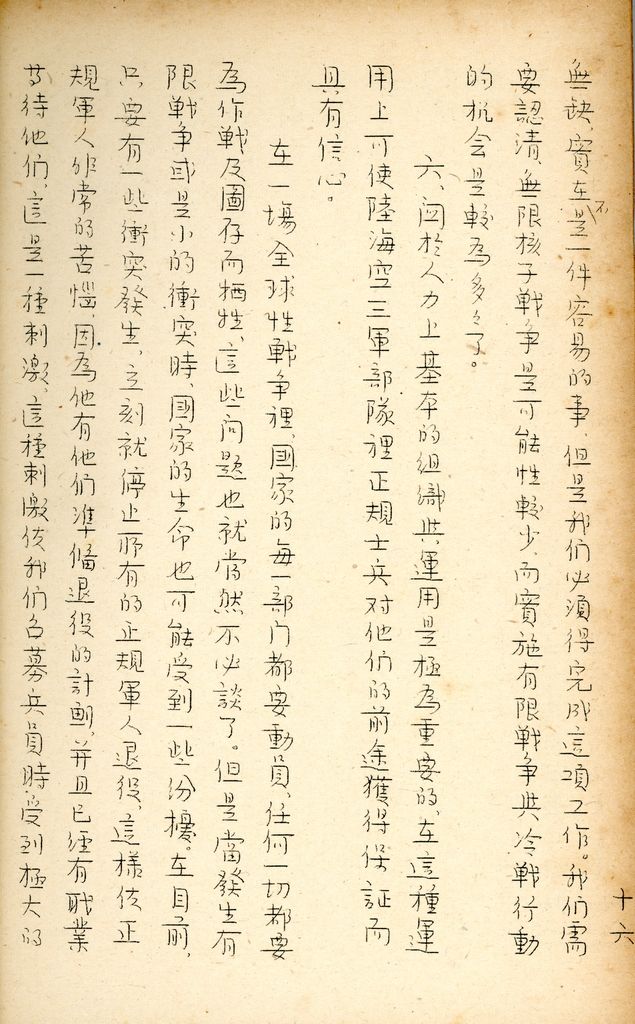 十六
無缺,實在不是一件容易的事,但是我们必須得完成這項工作。我们需
要認清,無限核子戰争是可能性較少,而實施有限戰争與冷戰行動
的机会是較為多多了。
六、関於人力上基本的組織與運用是極為重要的,在這種運
用上可使陸海空三軍部隊裡正規士兵对他们的前途獲得保証而
具有信心。
在一場全球性戰争裡,國家的每一部门都要動員,任何一切都要
為作戰及圖存而牺牲,這些问題也就當然不必談了。但是當發生有
限戰争或是小的衝突時,國家的生命也可能受到一些纷擾。在目前,
只要有一些衝突發生,立刻就停止所有的正規軍人退役,這樣使正
規軍人非常的苦惱,因為他有他们準備退役的計劃,并且已經有職業
等待他们,這是一種刺激,這種刺激使我们召募兵員時受到極大的